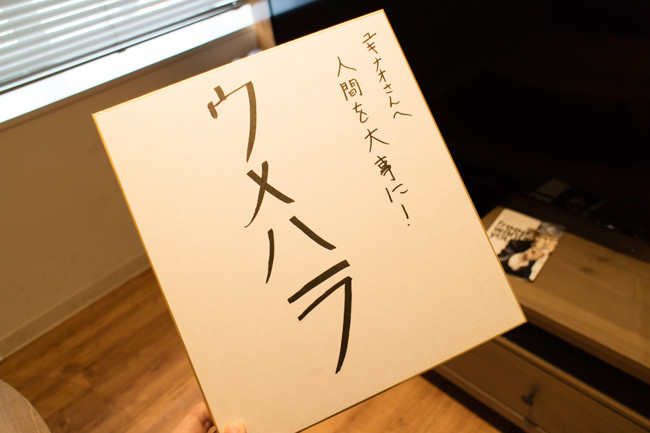 ユキナオさんへ
人間を大事に!
ウメハラ